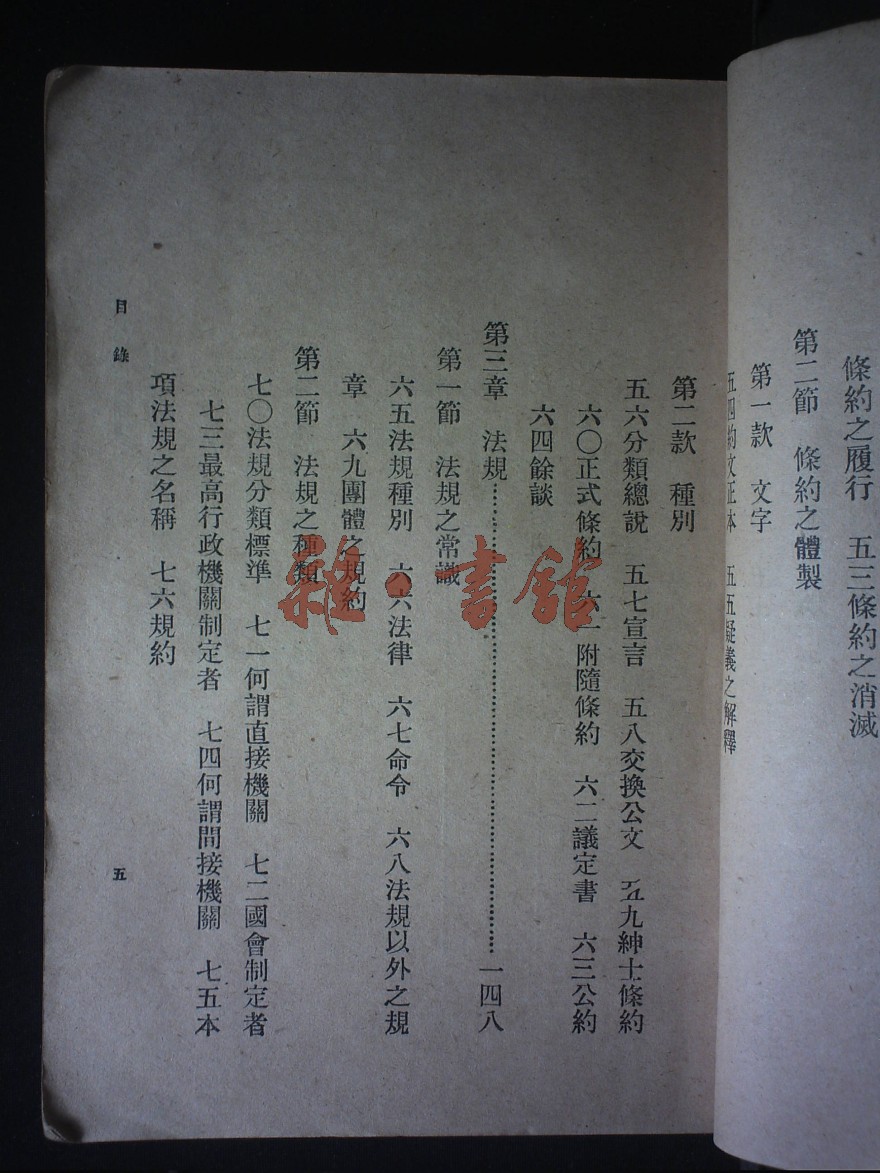 條約之履行　五三條約之消滅
第二節　條約之體製
第一款　文字
五四約文正本　五五疑義之解釋
第二款　種別
五六分類總說　五七宣言　五八交換公文　五九紳士條約
六〇正式條約　六一附隨條約　六二議定書　六三公約
六四餘談
第三章　法規……………………………………………一四八
第一節　法規之常識
六五法規種別　六六法律　六七命令　六八法規以外之規
章　六九團體之規約
第二節　法規之種類
七〇法規分類標準　七一何謂直接機關　七二國會制定者
七三最高行政機關制定者　七四何謂間接機關　七五本
項法規之名稱　七六規約
目錄
五
雜·書館